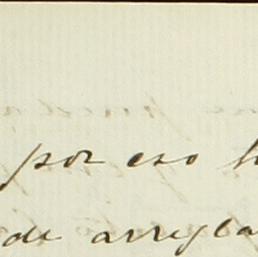 por eso h
de arregla